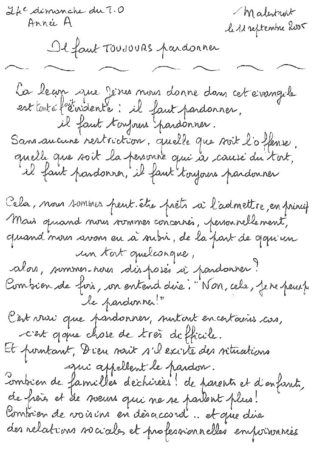 24e dimanche du T.O
Année A
Malestroit
le 11 septembre 2005
Il faut TOUJOURS pardonner
La leçon que Jésus nous donne dans cet évangile
est tout à fait évidente : il faut pardonner,
il faut toujours pardonner.
Sans aucune restriction, quelle que soit l'offense,
quelle que soit la personne qui a causé du tort,
il faut pardonner, il faut toujours pardonner
Cela, nous sommes peut-être prêts à l'admettre, en princip
Mais quand nous sommes concernés, personnellement,
quand nous avons eu à subir, de la part de qqu'un
un tort quelconque,
alors, sommes-nous disposés à pardonner ?
Combien de fois, on entend dire : "Non, cela, je ne peux p
le pardonner !"
C'est vrai que pardonner, surtout en certains cas,
c'est qque chose de très difficile.
Et pourtant, Dieu sait s'il existe des situations
qui appellent le pardon.
Combien de familles déchirées ! de parents et d'enfants,
de frères et de sœurs qui ne se parlent plus !
Combien de voisins en désaccord .. et que dire
des relations sociales et professionnelles empoisonnées